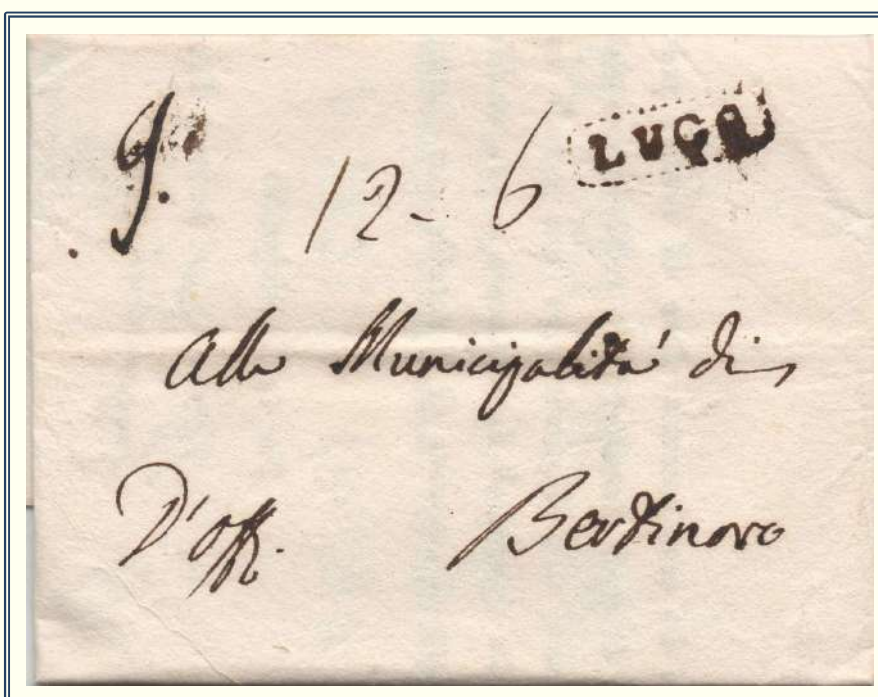 9.
12-6
LUGO
Alla Municipalità di
D'Off. Bertinoro